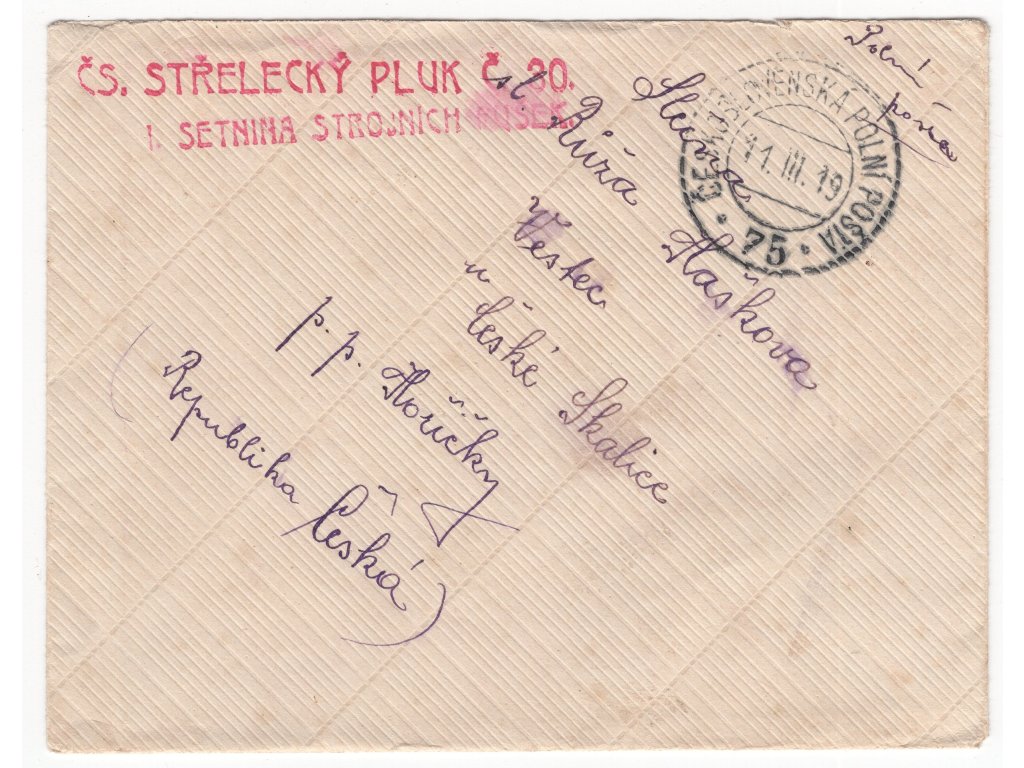 ČS. STŘELECKÝ PLUK Č. 30.
I. SETNINA STROJNÍCH PUŠEK.
ČESKOSLOVENSKÁ POLNÍ POŠTA
11. III. 19
* 75 *
Polní
pošta
Slečna
sl. Růža Hašková
Vestec
u České Skalice
p. p. Hořičky
(Republika Česká)